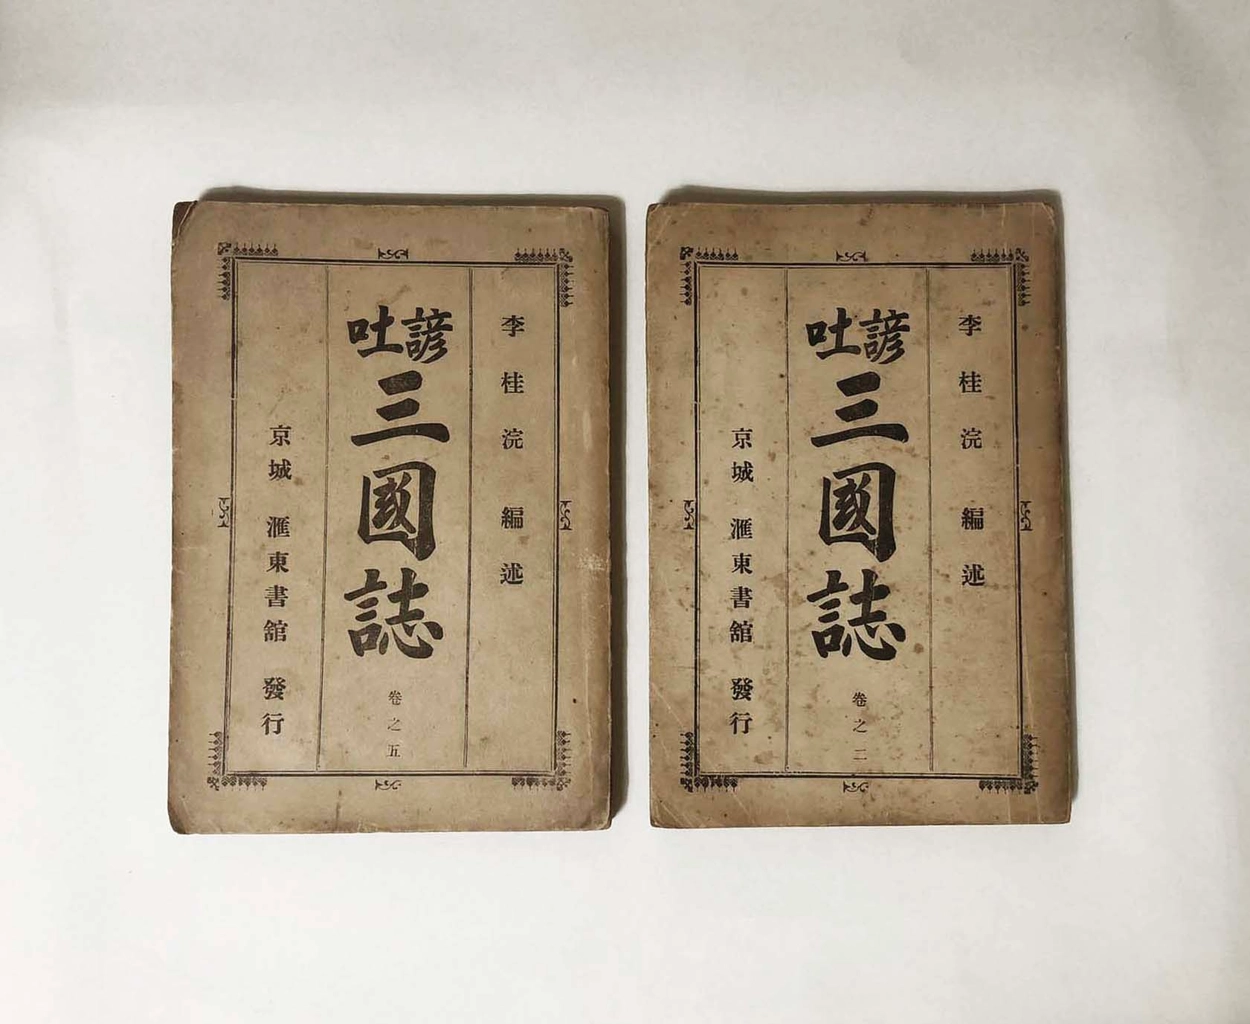 李桂浣 編述
諺吐 三國誌 卷之五
京城 滙東書舘 發行
李桂浣 編述
諺吐 三國誌 卷之二
京城 滙東書舘 發行